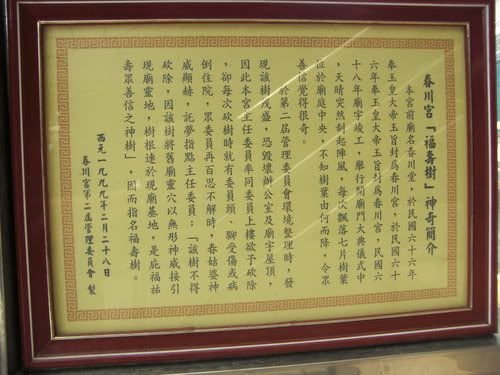 春川宮「福壽樹」神奇簡介
本宮前廟名春川堂，於民國六十六年
奉玉皇大帝玉旨封爲春川宮，於民國六十
六年奉玉皇大帝玉旨封爲春川宮，民國六
十八年廟宇竣工，舉行開廟門大典儀式中
，天晴突然刮起陣風，每次飄落七片樹葉
位於廟庭中央，不知樹葉由何而降，令眾
善信覺得很奇。
於第二屆管理委員會環境整理時，發
現該樹茂盛，恐毀壞辦公室及廟宇屋頂，
因此本宮主任委員率同委員上樓欲予砍除
，卻每次砍樹時就有委員頭、腳受傷或病
倒住院，眾委員再百思不解時，春姑婆神
威顯赫，託夢指點主任委員：「該樹不得
砍除，因該樹將舊廟靈穴以無形神威接引
現廟靈地，樹根連於現廟基地，是庇福祐
壽眾善信之神樹」，因而指名福壽樹。
西元一九九九年二月二十八日
春川宮第二屆管理委員會 製